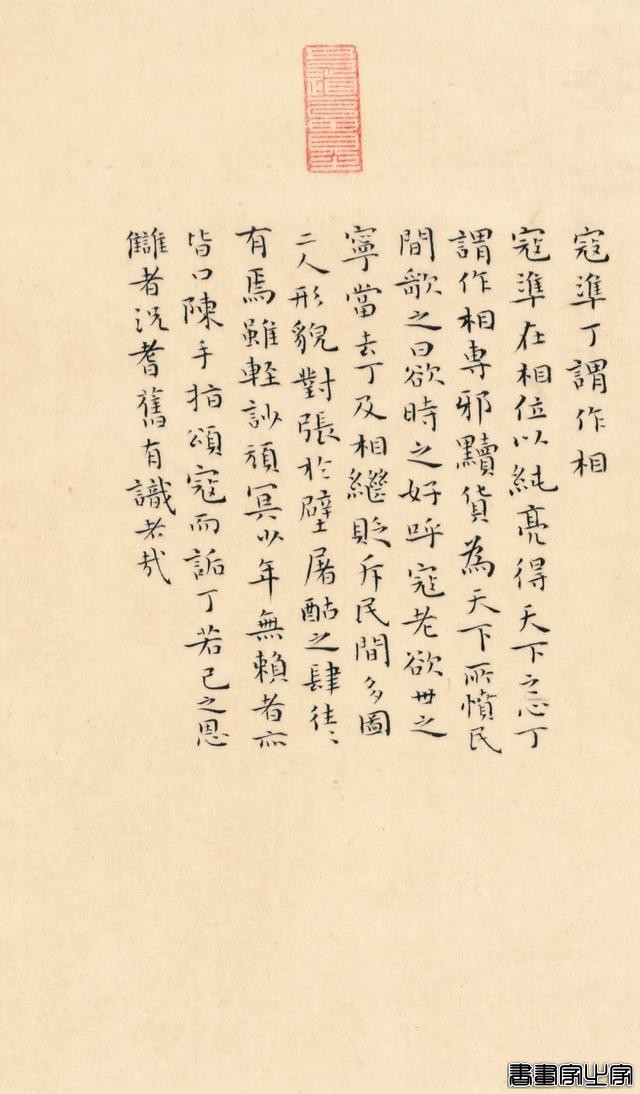 寇準丁謂作相
寇準在相位以純亮得天下之心丁
謂作相專邪黷貨為天下所憤民
間歌之曰欲時之好呼寇老欲世之
寧當去丁及相繼貶斥民間多圖
二人形貌對張於壁屠酤之肆往〻
有焉雖輊訬頑冥少年無賴者亦
皆口陳手指頌寇而詬丁若己之恩
讎者況耆舊有識者哉
書畫家之家